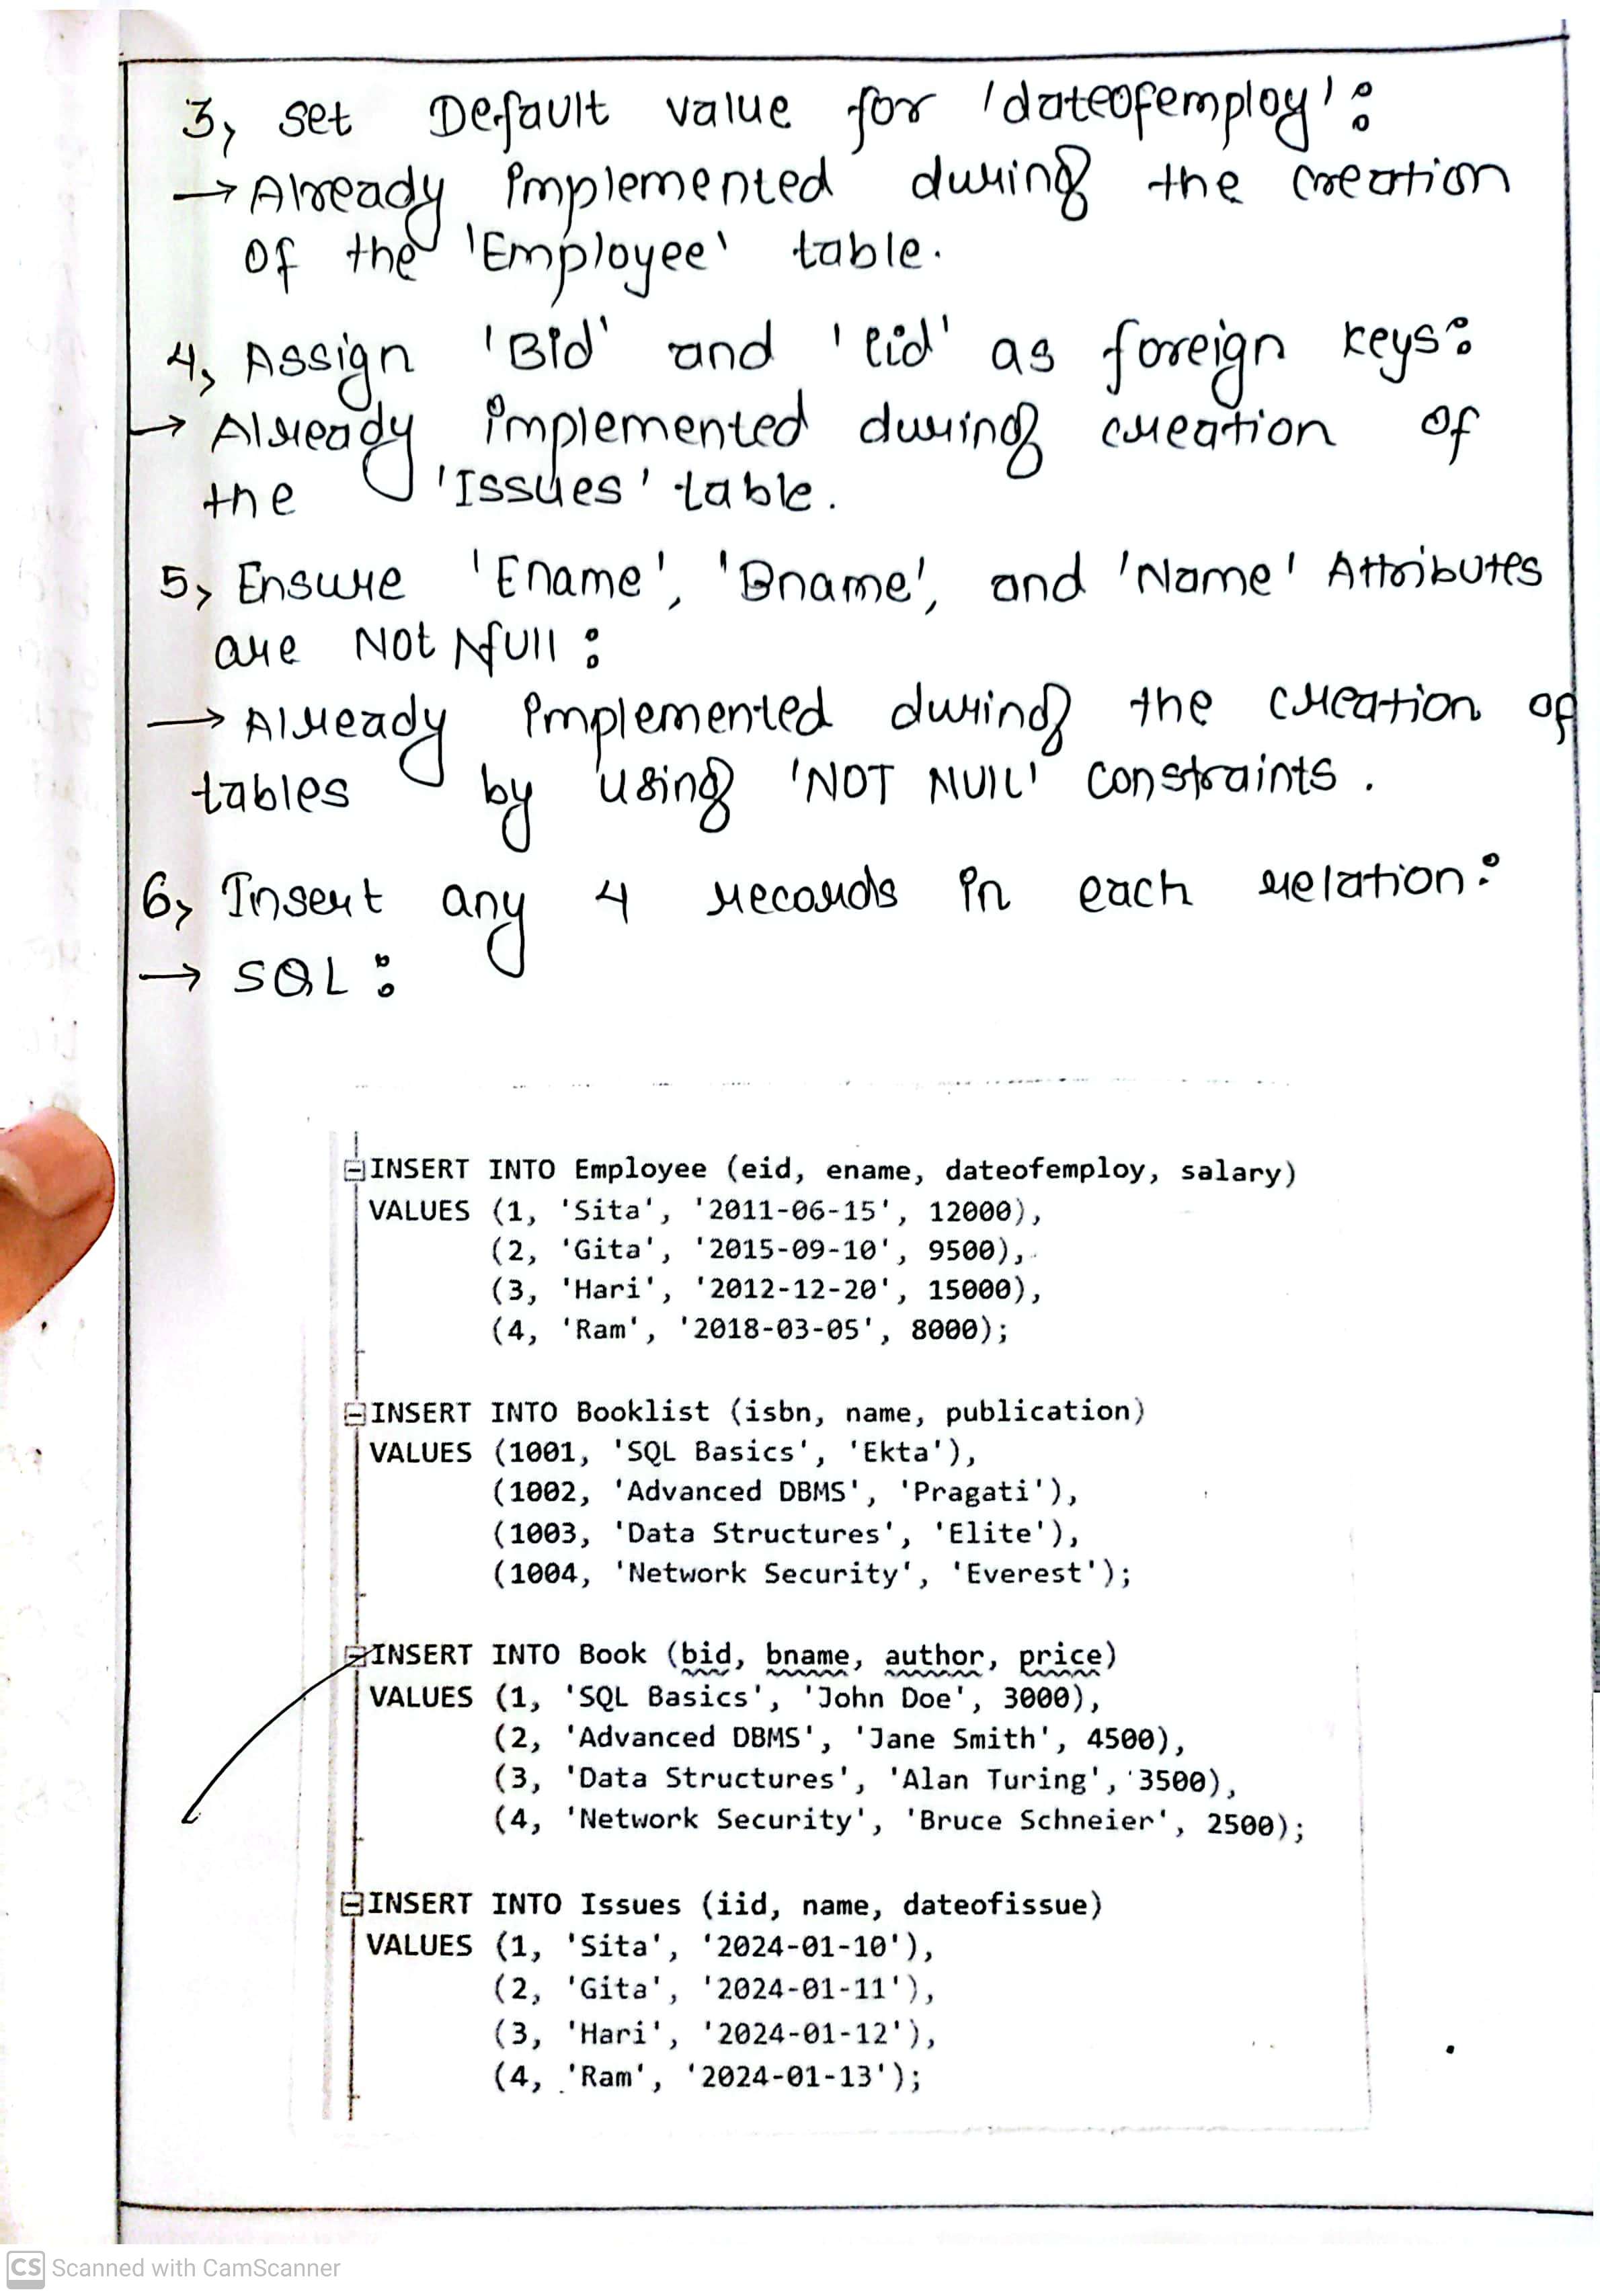 3, Set Default value for 'dateofemploy':
→ Already implemented during the creation
of the 'Employee' table.
4, Assign 'Bid' and 'eid' as foreign keys:
→ Already implemented during creation of
the 'Issues' table.
5, Ensure 'Ename', 'Bname', and 'Name' Attributes
are Not Null:
→ Already implemented during the creation of
tables by using 'NOT NUll' constraints.
6, Insert any 4 records in each relation:
→ SQL:
INSERT INTO Employee (eid, ename, dateofemploy, salary)
VALUES (1, 'Sita', '2011-06-15', 12000),
(2, 'Gita', '2015-09-10', 9500),
(3, 'Hari', '2012-12-20', 15000),
(4, 'Ram', '2018-03-05', 8000);
INSERT INTO Booklist (isbn, name, publication)
VALUES (1001, 'SQL Basics', 'Ekta'),
(1002, 'Advanced DBMS', 'Pragati'),
(1003, 'Data Structures', 'Elite'),
(1004, 'Network Security', 'Everest');
INSERT INTO Book (bid, bname, author, price)
VALUES (1, 'SQL Basics', 'John Doe', 3000),
(2, 'Advanced DBMS', 'Jane Smith', 4500),
(3, 'Data Structures', 'Alan Turing', 3500),
(4, 'Network Security', 'Bruce Schneier', 2500);
INSERT INTO Issues (iid, name, dateofissue)
VALUES (1, 'Sita', '2024-01-10'),
(2, 'Gita', '2024-01-11'),
(3, 'Hari', '2024-01-12'),
(4, 'Ram', '2024-01-13');
CS Scanned with CamScanner